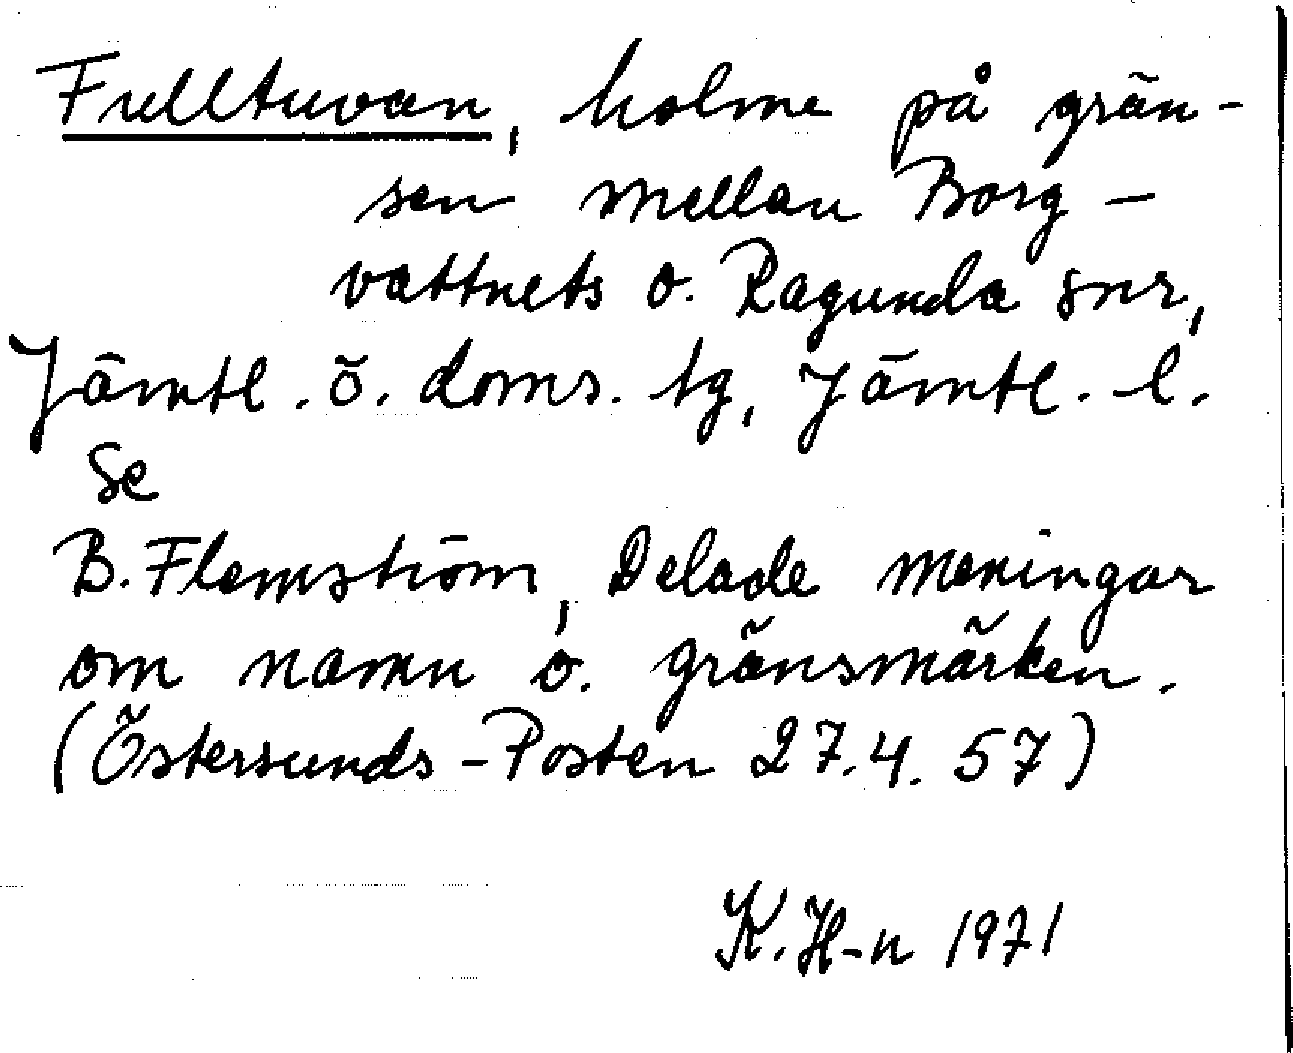 Fulltuvan, holme på grän-
sen mellan Borg-
vattnets o. Ragunda snr,
Jämtl. ö. doms. tg, Jämtl. l.
Se
B. Flemström, Delade meningar
om namn o. gränsmärken.
(Östersunds-Posten 27.4.57)
K. H-n 1971